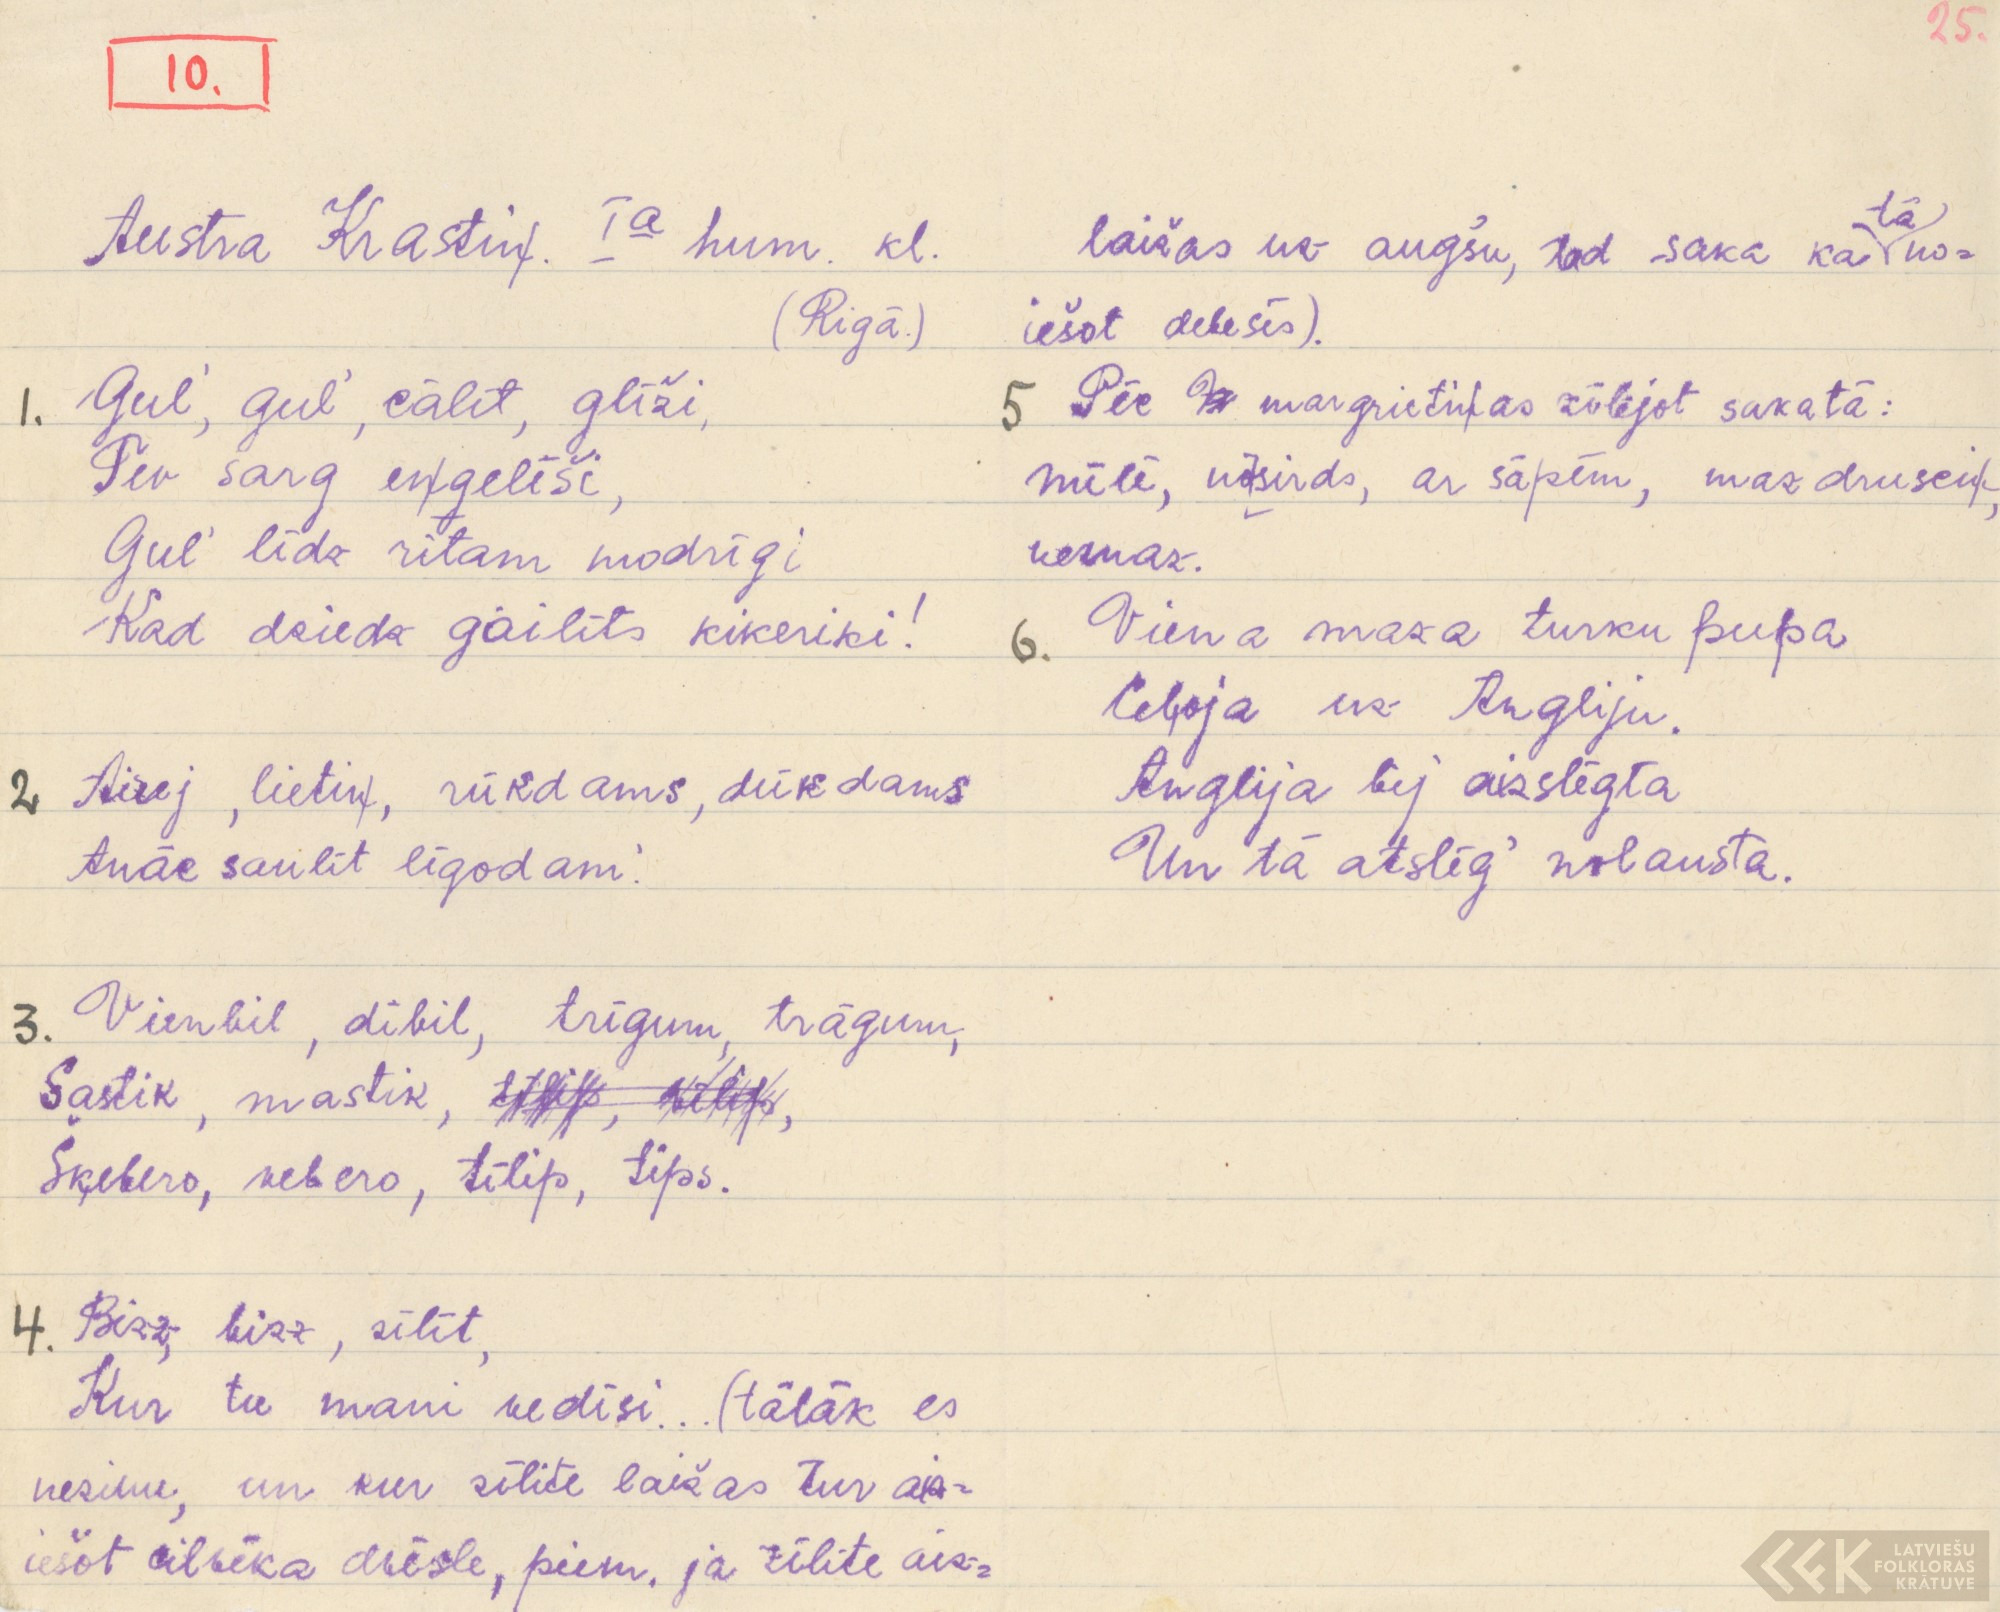 25.
10.
Austra Krastiņ. Iª hum. kl.
(Rigā.)
1. Gul', gul', cālīt, glīži,
Tev sarg eņģelīši,
Gul' līdz rītam modrīgi
Kad dziedz gailīts kikeriki!
2 Aizej, lietiņ, rūkdams, dūkdams
Atnāc saulīt līgodami!
3. Vienbil, dibil, trīgum, trāgum,
Sastik, mastik,
Šķebero, vebero, tilip, tips.
4. Bizz, bizz, zīlīt,
Kur tu mani vedīsi... (tālāk es
nezinu, un kur zīlīte laižas tur aiz=
iešot cilvēka dvēsle, piem. ja zīlīte aiz=
laižas uz augšu, tad saka ka tā no=
iešot debesīs).
5 Pēc margrietiņas zīlējot saka tā:
mīlē, no sirds, ar sāpēm, maz drusciņ,
nemaz.
6. Viena maza turku pupa
Ceļoja uz Angliju.
Anglija bij aizslēgta
Un tā atslēg' nolausta.
LATVIEŠU
FOLKLORAS
KRĀTUVE